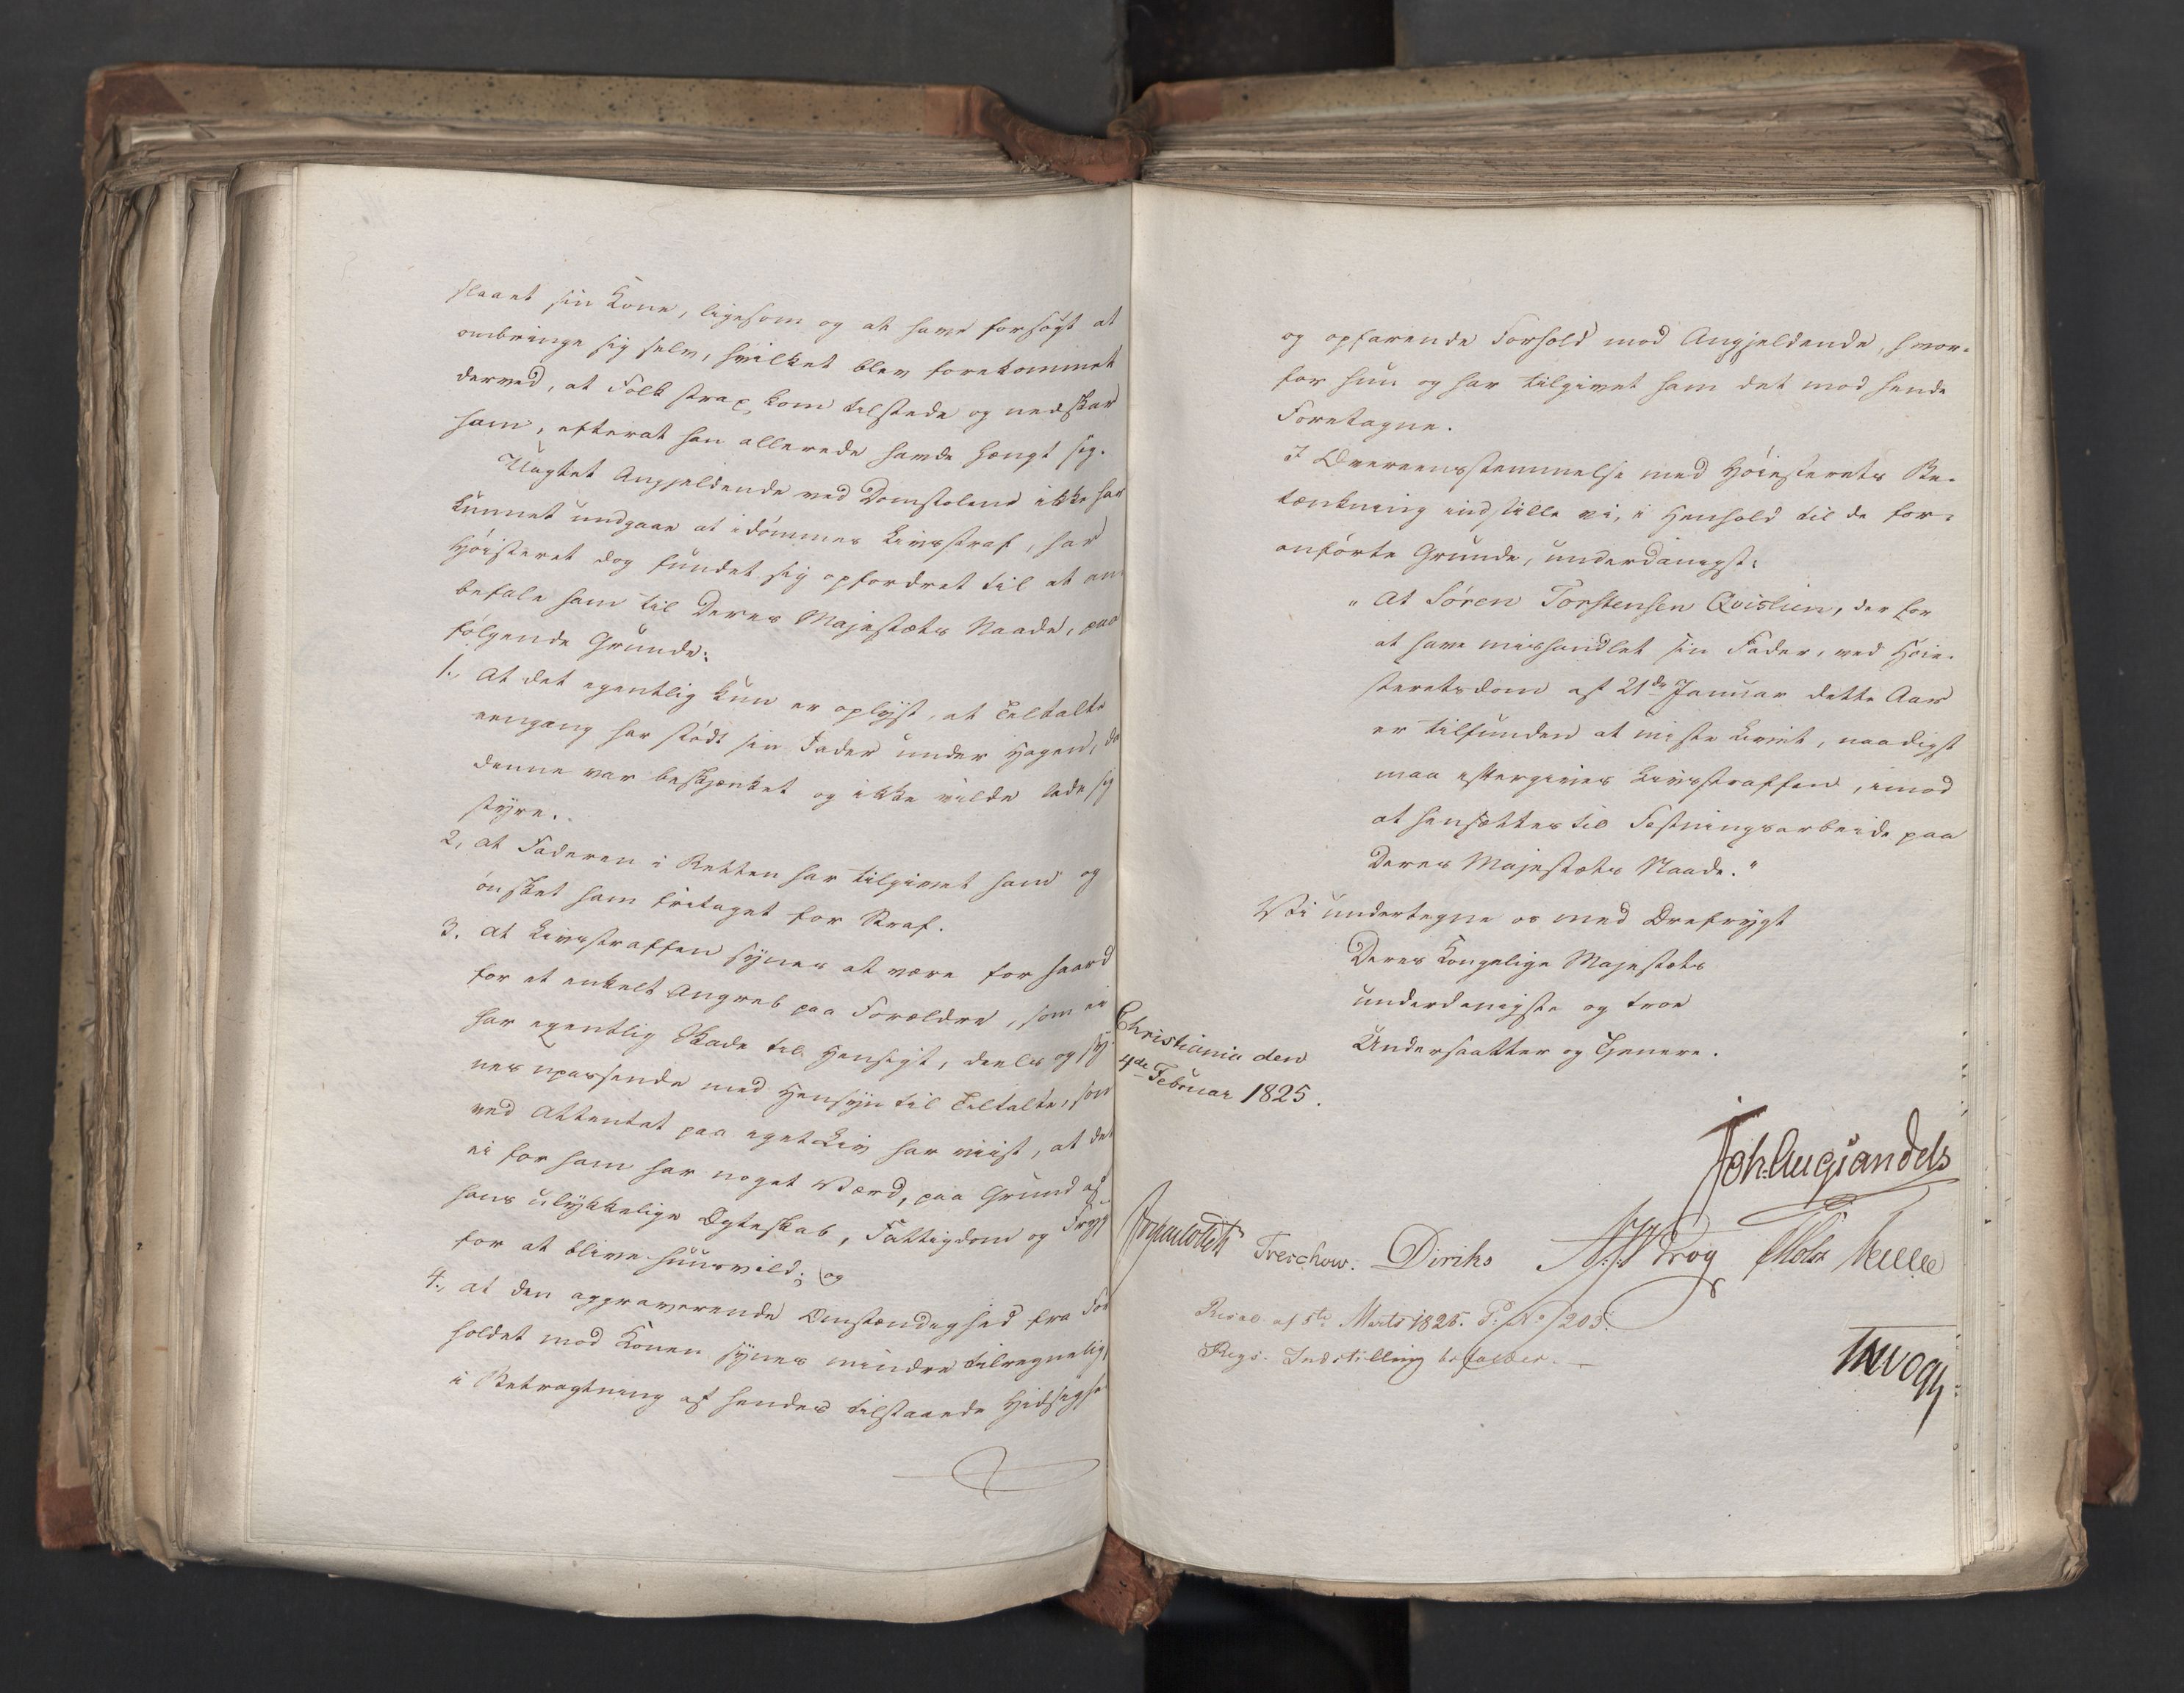 slaaet sin Kone, ligesom og at have forsøgt at
ombringe sig selv, hvilket blev forekommet
derved, at Folk strax kom tilstede og nedskar
ham, efterat han allerede havde hængt sig.
Uagtet Angjeldende ved Domstolene ikke har
kunnet undgaae at idømmes Livsstraf, har
Høiesteret dog fundet sig opfordret til at an-
befale ham til Deres Majestæts Naade, paa
følgende Grunde:
1., At det egentlig kun er oplyst, at Tiltalte
eengang har stødt sin Fader under Hagen, da
denne var beskjænket og ikke vilde lade sig
styre.
2, at Faderen i Retten har tilgivet ham og
ønsket ham fritaget for Straf.
3. at Livsstraffen synes at være for haard
for et enkelt Angreb paa Forældre, som ei
har egentlig Skade til Hensigt, deels og sy-
nes upassende med Hensyn til Tiltalte, som
ved Attentat paa eget Liv har viist, at det
ei for ham har noget Værd, paa Grund af
hans ulykkelige Ægteskab, Fattigdom og Frygt
for at blive huusvild; og
4., at den aggraverende Omstændighed fra For-
holdet mod Konen synes mindre tilregnelig,
i Betragtning af hendes tilstaaede Hidsighed
og opfarende Forhold mod Angjeldende, hvor-
for hun og har tilgivet ham det mod hende
Foretagne.
I Overeensstemmelse med Høiesterets Be-
tænkning indstille vi, i Henhold til de for-
anførte Grunde, underdanigst:
"At Søren Torstensen Qvislien, der for
at have mishandlet sin Fader, ved Høie-
steretsdom af 21de Januar dette Aar
er tilfunden at miste Livet, naadigst
maa eftergives Livsstraffen, imod
at hensættes til Fæstningsarbeide paa
Deres Majestæts Naade."
Vi undertegne os med Ærefrygt
Deres Kongelige Majestæts
underdanigste og troe
Undersaatter og Tjenere.
Christiania den
4de Februar 1825.
Joh. Aug Sandels
Treschow. Diriks Krog
Resol. af 5te Marts 1825. P: No /205.
Regs. Indstilling bifaldes. -
Vogt